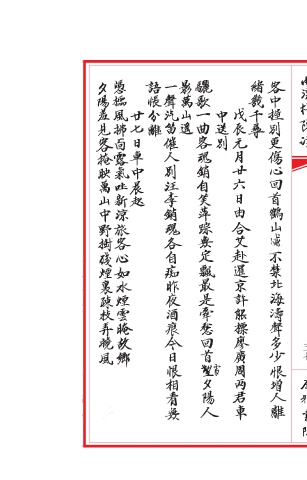 客中握別更傷心回首鶴山慮不禁北海濤聲多少恨增人離
緒幾千尋
戊辰元月廿六日由合艾赴暹京許能標廖廣周兩君車
中送別
驪歌一曲客魂銷自笑萍踪無定飄最是牽愁回首望夕陽人
影萬山遙
一聲汽笛催人別汪李銷魂各自痴昨夜酒痕今日恨相看無
語悵分離
廿七日車中晨起
憑檻風拂面露氣吐新涼旅客心如水煙雲掩故鄉
夕陽羞見客掩映萬山中野樹殘煙裏疎枝弄晚風